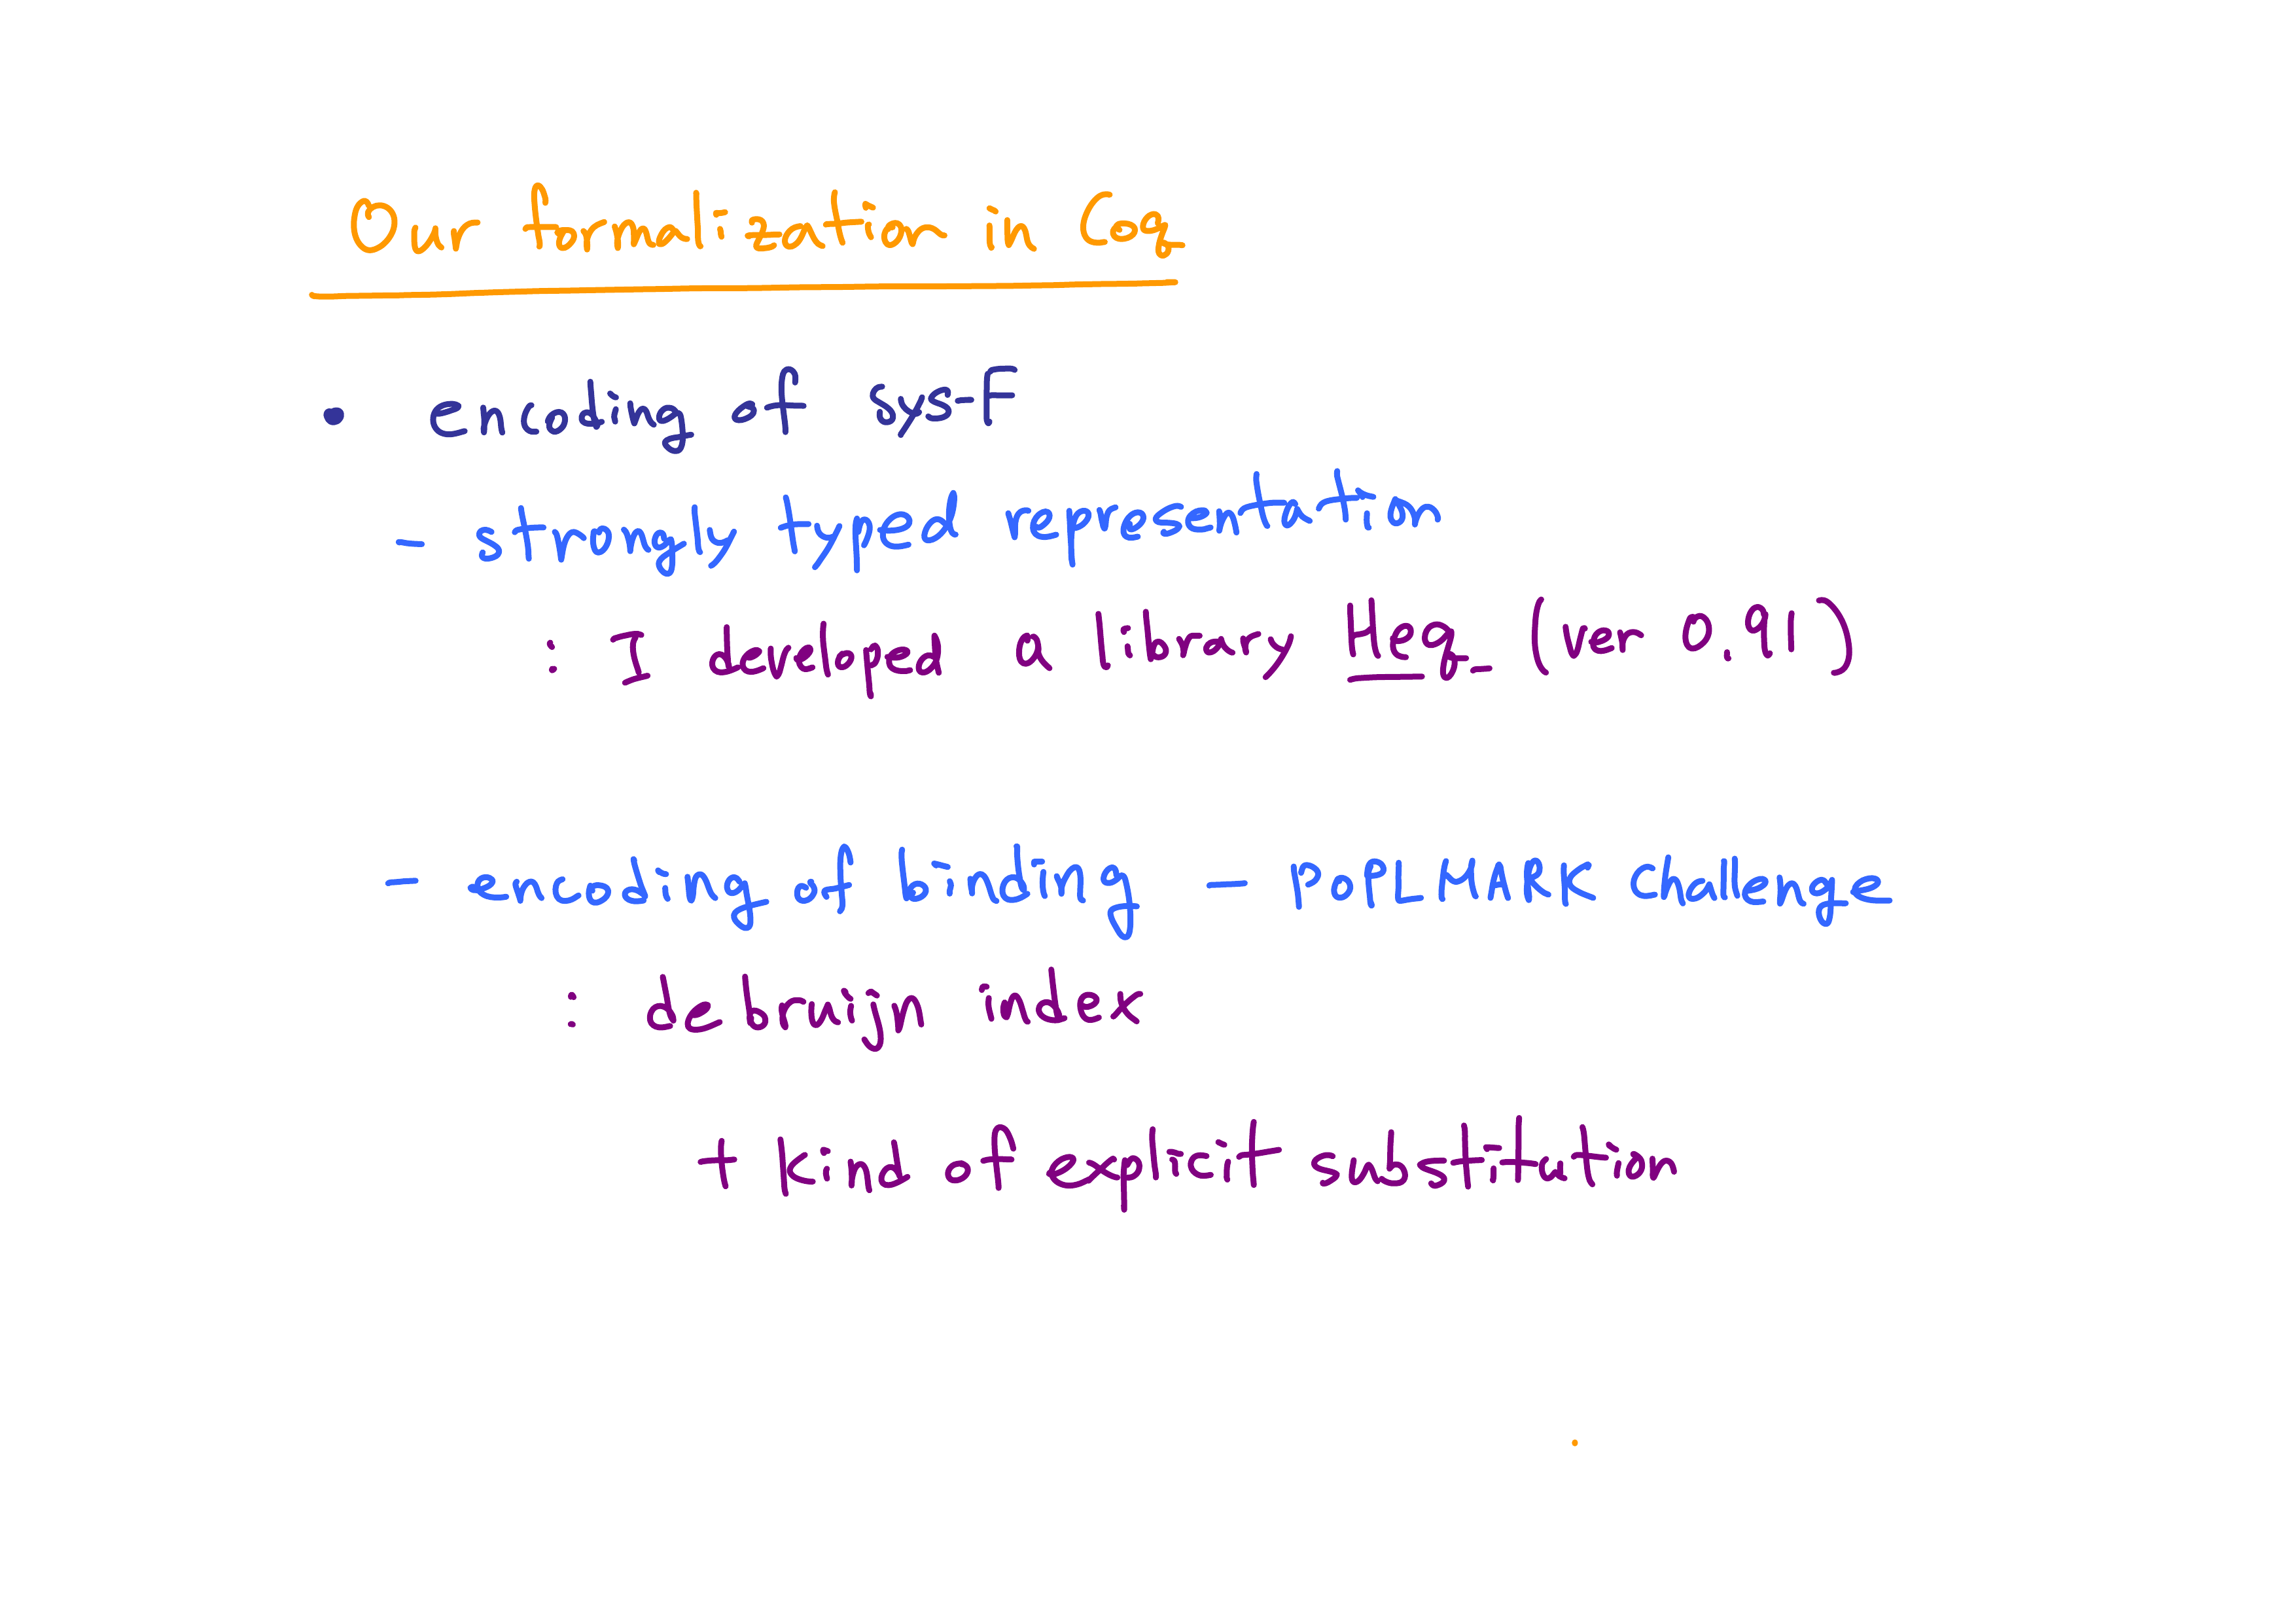 Our formalization in Coq
• encoding of sys-F
- strongly typed representation
: I developed a library Heq (ver 0.91)
- encoding of binding - POPLMARK Challenge
: de bruijn index
+ kind of explicit substitution